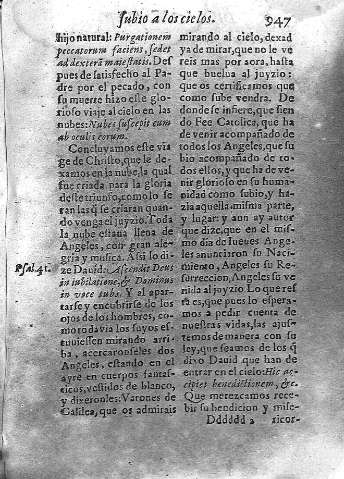 Subio a los cielos.
947
hijo natural: Purgationem
peccatorum faciens, sedet
ad dexterã maiestatis. Des
pues de satisfecho al Pa
dre por el pecado, con
su muerte hizo este glo-
rioso viaje al cielo en las
nubes: Nubes suscepit eum
ab oculis eorum.
Concluyamos este via
ge de Christo, que le de-
xamos en la nube, la qual
fue criada para la gloria
deste triunfo, como lo se
ran las q̃ se criaran quan-
do venga el juyzio. Toda
la nube estaua llena de
Angeles, con gran ale-
gria y musica. Assi lo di-
ze Dauid: Ascendit Deus
in iubilatione, & Dominus
in voce tubæ. Y al apar-
tarse y encubrirse de los
ojos de los hombres, co-
mo todavia los suyos es-
tuuiessen mirando arri-
ba, acercaronseles dos
Angeles, estando en el
ayre en cuerpos fantas-
ticos, vestidos de blanco,
y dixeronles: Varones de
Galilea, que os admirais
Psal. 41.
mirando al cielo, dexad
ya de mirar, que no le ve
reis mas por aora, hasta
que buelua al juyzio:
que os certificamos que
como sube vendra. De
donde se infiere, que sien
do Fee Catolica, que ha
de venir acompañado de
todos los Angeles, que su
bio acompañado de to-
dos ellos, y que ha de ve-
nir glorioso en su huma-
nidad como subio, y há-
zia aquella misma parte,
y lugar: y aun ay autor
que dize, que en el mis-
mo dia de Iueues Ange-
les anunciaron su Naci-
miento, Angeles su Re-
surreccion, Angeles su ve
nida al juyzio. Lo que res
ta es, que pues lo espera-
mos a pedir cuenta de
nuestras vidas, las ajus-
temos de manera con su
ley, que seamos de los q̃
dixo Dauid que han de
entrar en el cielo: Hic ac-
cipiet benedictionem, &c.
Que merezcamos rece-
bir su bendicion y mise-
Dddddd 2 ricor-